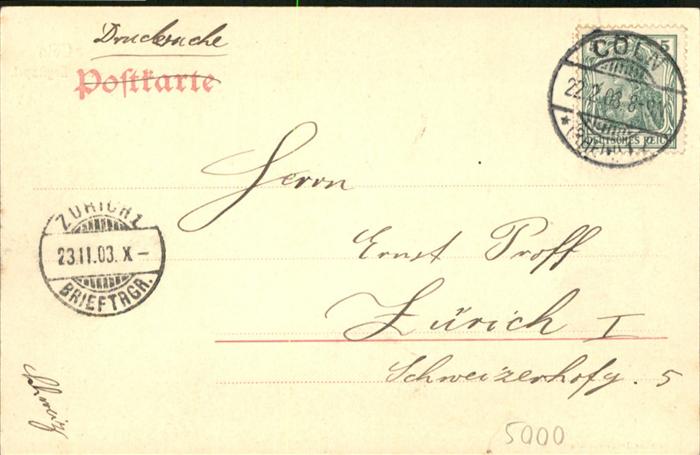 Drucksache
Postkarte
5
CÖLN
22.2.03. 8-9
DEUTSCHES REICH
Herrn
ZÜRICH 1
23.II.03. X –
BRIEFTRGR.
Ernst Proff
Zürich I
Schweizerhofg. 5
Schweiz
5000